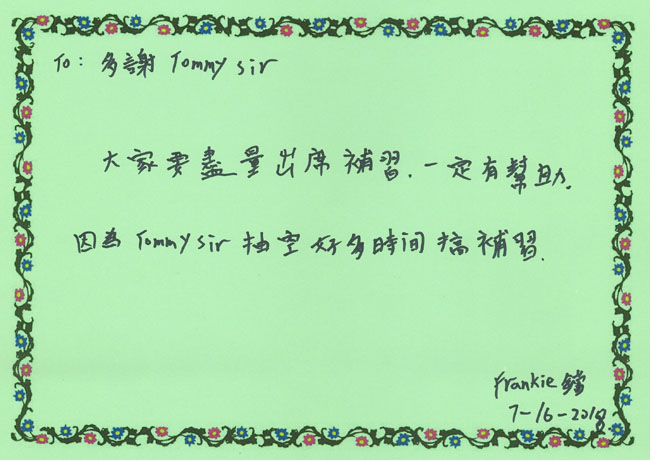 To: 多謝 Tommy sir
大家要盡量出席補習.一定有幫助.
因為 Tommy sir 抽空好多時间搞補習.
Frankie
7-16-2018